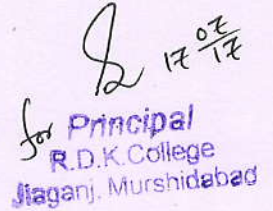 17 07/17
for Principal
R.D.K.College
Jiaganj, Murshidabad